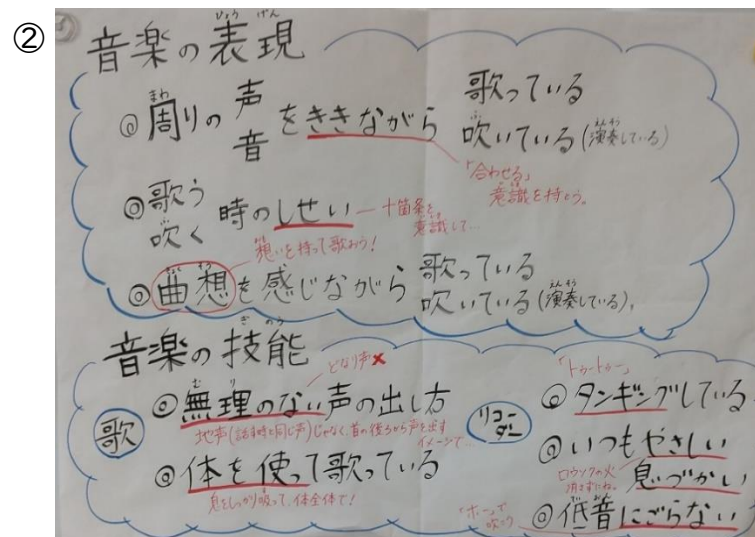 ②
音楽の表現
ひょう げん
◎周りの声 音をききながら 歌っている 吹いている(演奏している)
まわ
ふ
えんそう
「合わせる」
意識を持とう。
◎歌う 吹く 時のしせい
十箇条を
意識して…
想いを持って歌おう!
◎曲想を感じながら 歌っている 吹いている(演奏している)。
きょく そう
えんそう
音楽の技能
ぎ のう
どなり声✖
歌
◎無理のない声の出し方
む り
地声(話す時と同じ声)じゃなく、首の後ろから声を出す
イメージで…
◎体を使って歌っている
息をしっかり吸って、体全体で!
リコーダー
「トゥートゥー」
◎タンギングしている
◎いつもやさしい
息づかい
ロウソクの火
「ホー」で
吹こう
◎低音にごらない